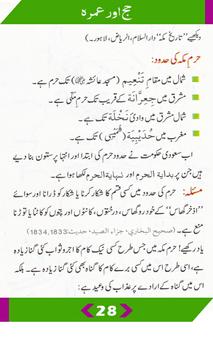 حج اور عمرہ
دیکھیے ”تاریخ مکہ“ دار السلام، الریاض، لاہور۔)
حرم مکہ کی حدود:
شمال میں مقام تَنْعِیم (مسجد عائشہ) تک حرم ہے۔
مشرق میں جِعِرَّانَة کے قریب تک حرم مکی ہے۔
مشرق شمال میں وادیٔ نَخْلَة تک ہے۔
مغرب میں حُدَیْبِیَة (شُمَیْسِی) تک ہے۔
اب سعودی حکومت نے حدود حرم کی ابتدا اور انتہا پر ستون بنا دیے
ہیں جن پر بدایة الحرم اور نهایة الحرم لکھا ہوا ہے۔
مسئلہ: حرم کی حدود میں کسی قسم کا شکار کرنا یا شکار کو ڈرانا اور سوائے
”اذخر گھاس“ کے خود رو گھاس، درختوں، کانٹوں اور پودوں کو کاٹنا یا توڑنا
منع ہے۔ (صحیح البخاري، جزاء الصید، حدیث: 1834,1833)
یاد رکھیے! حرم مکہ میں جس طرح کسی نیک کام کا اجر و ثواب کئی گنا زیادہ
ہے، اسی طرح اس میں کسی برے کام کا گناہ بھی کئی گنا زیادہ ہے۔ بلکہ
اس میں گناہ کے ارادے پر عذاب کی وعید ہے:
28